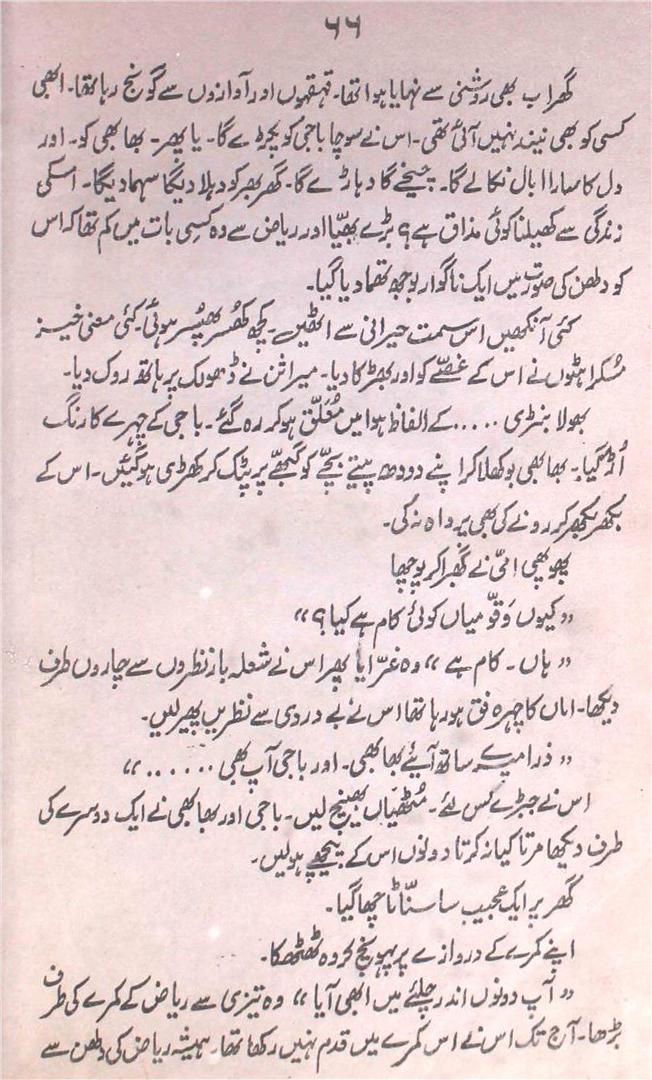 ۶۶
گھر اب بھی روشنی سے نہایا ہوا تھا۔ قہقہوں اور آوازوں سے گونج رہا تھا۔ ابھی
کسی کو بھی نیند نہیں آئی تھی۔ اس نے سوچا باجی کو پکڑے گا۔ یا پھر۔ بھابھی کو۔ اور
دل کا سارا ابال نکالے گا۔ چیخے گا دہاڑے گا۔ گھر بھر کو دہلا دیگا سہما دیگا۔ اسکی
زندگی سے کھیلنا کوئی مذاق ہے؟ بڑے بھیّا اور ریاض سے وہ کسِی بات میں کم تھا کہ اس
کو دلھن کی صورت میں ایک ناگوار بوجھ تھما دیا گیا۔
کئی آنکھیں اس سمت حیرانی سے اٹھیں۔ کچھ کھُسر پھُسر ہوئی۔ کئی معنی خیز
مُسکراہٹوں نے اس کے غصّے کو اور بھڑکا دیا۔ میراثن نے ڈھولک پر ہاتھ روک دیا۔
بھولا بنڑی ..... کے الفاظ ہوا میں مُعلّق ہو کر رہ گئے۔ باجی کے چہرے کا رنگ
اُڑ گیا۔ بھابھی بوکھلا کر اپنے دودھ پیتے بچّے کو گبھّے پر پٹک کر کھڑی ہو گئیں۔ اس کے
بکھر بکھر کر رونے کی بھی پرواہ نہ کی۔
پھوپھی امّی نے گھبرا کر پوچھا
”کیوں وَقّو میاں کوئی کام ہے کیا؟“
”ہاں۔ کام ہے“ وہ غرّایا پھر اس نے شعلہ باز نظروں سے چاروں طرف
دیکھا۔ اماں کا چہرہ فق ہو رہا تھا اس نے بے دردی سے نظریں پھیر لیں۔
”ذرا میرے ساتھ آیئے بھابھی۔ اور باجی آپ بھی ......“
اس نے جبڑے کس لئے۔ مُٹھیاں بھینچ لیں۔ باجی اور بھابھی نے ایک دوسرے کی
طرف دیکھا مرتا کیا نہ کرتا دونوں اس کے پیچھے ہولیں۔
گھر پر ایک عجیب سا سنّاٹا چھا گیا۔
اپنے کمرے کے دروازے پر پہونچ کر وہ ٹھٹھکا۔
”آپ دونوں اندر چلیئے میں ابھی آیا“ وہ تیزی سے ریاض کے کمرے کی طرف
بڑھا۔ آج تک اس نے اس کمرے میں قدم نہیں رکھا تھا۔ ہمیشہ ریاض کی دلھن سے